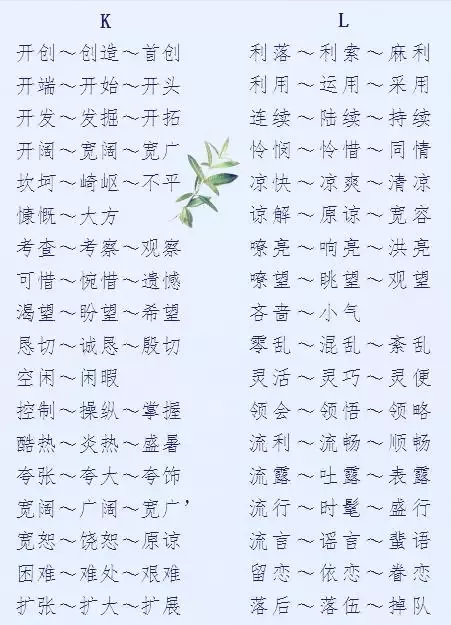 K
开创～创造～首创
开端～开始～开头
开发～发掘～开拓
开阔～宽阔～宽广
坎坷～崎岖～不平
慷慨～大方
考查～考察～观察
可惜～惋惜～遗憾
渴望～盼望～希望
恳切～诚恳～殷切
空闲～闲暇
控制～操纵～掌握
酷热～炎热～盛暑
夸张～夸大～夸饰
宽阔～广阔～宽广’
宽恕～饶恕～原谅
困难～难处～艰难
扩张～扩大～扩展
L
利落～利索～麻利
利用～运用～采用
连续～陆续～持续
怜悯～怜惜～同情
凉快～凉爽～清凉
谅解～原谅～宽容
嘹亮～响亮～洪亮
瞭望～眺望～观望
吝啬～小气
零乱～混乱～紊乱
灵活～灵巧～灵便
领会～领悟～领略
流利～流畅～顺畅
流露～吐露～表露
流行～时髦～盛行
流言～谣言～蜚语
留恋～依恋～眷恋
落后～落伍～掉队